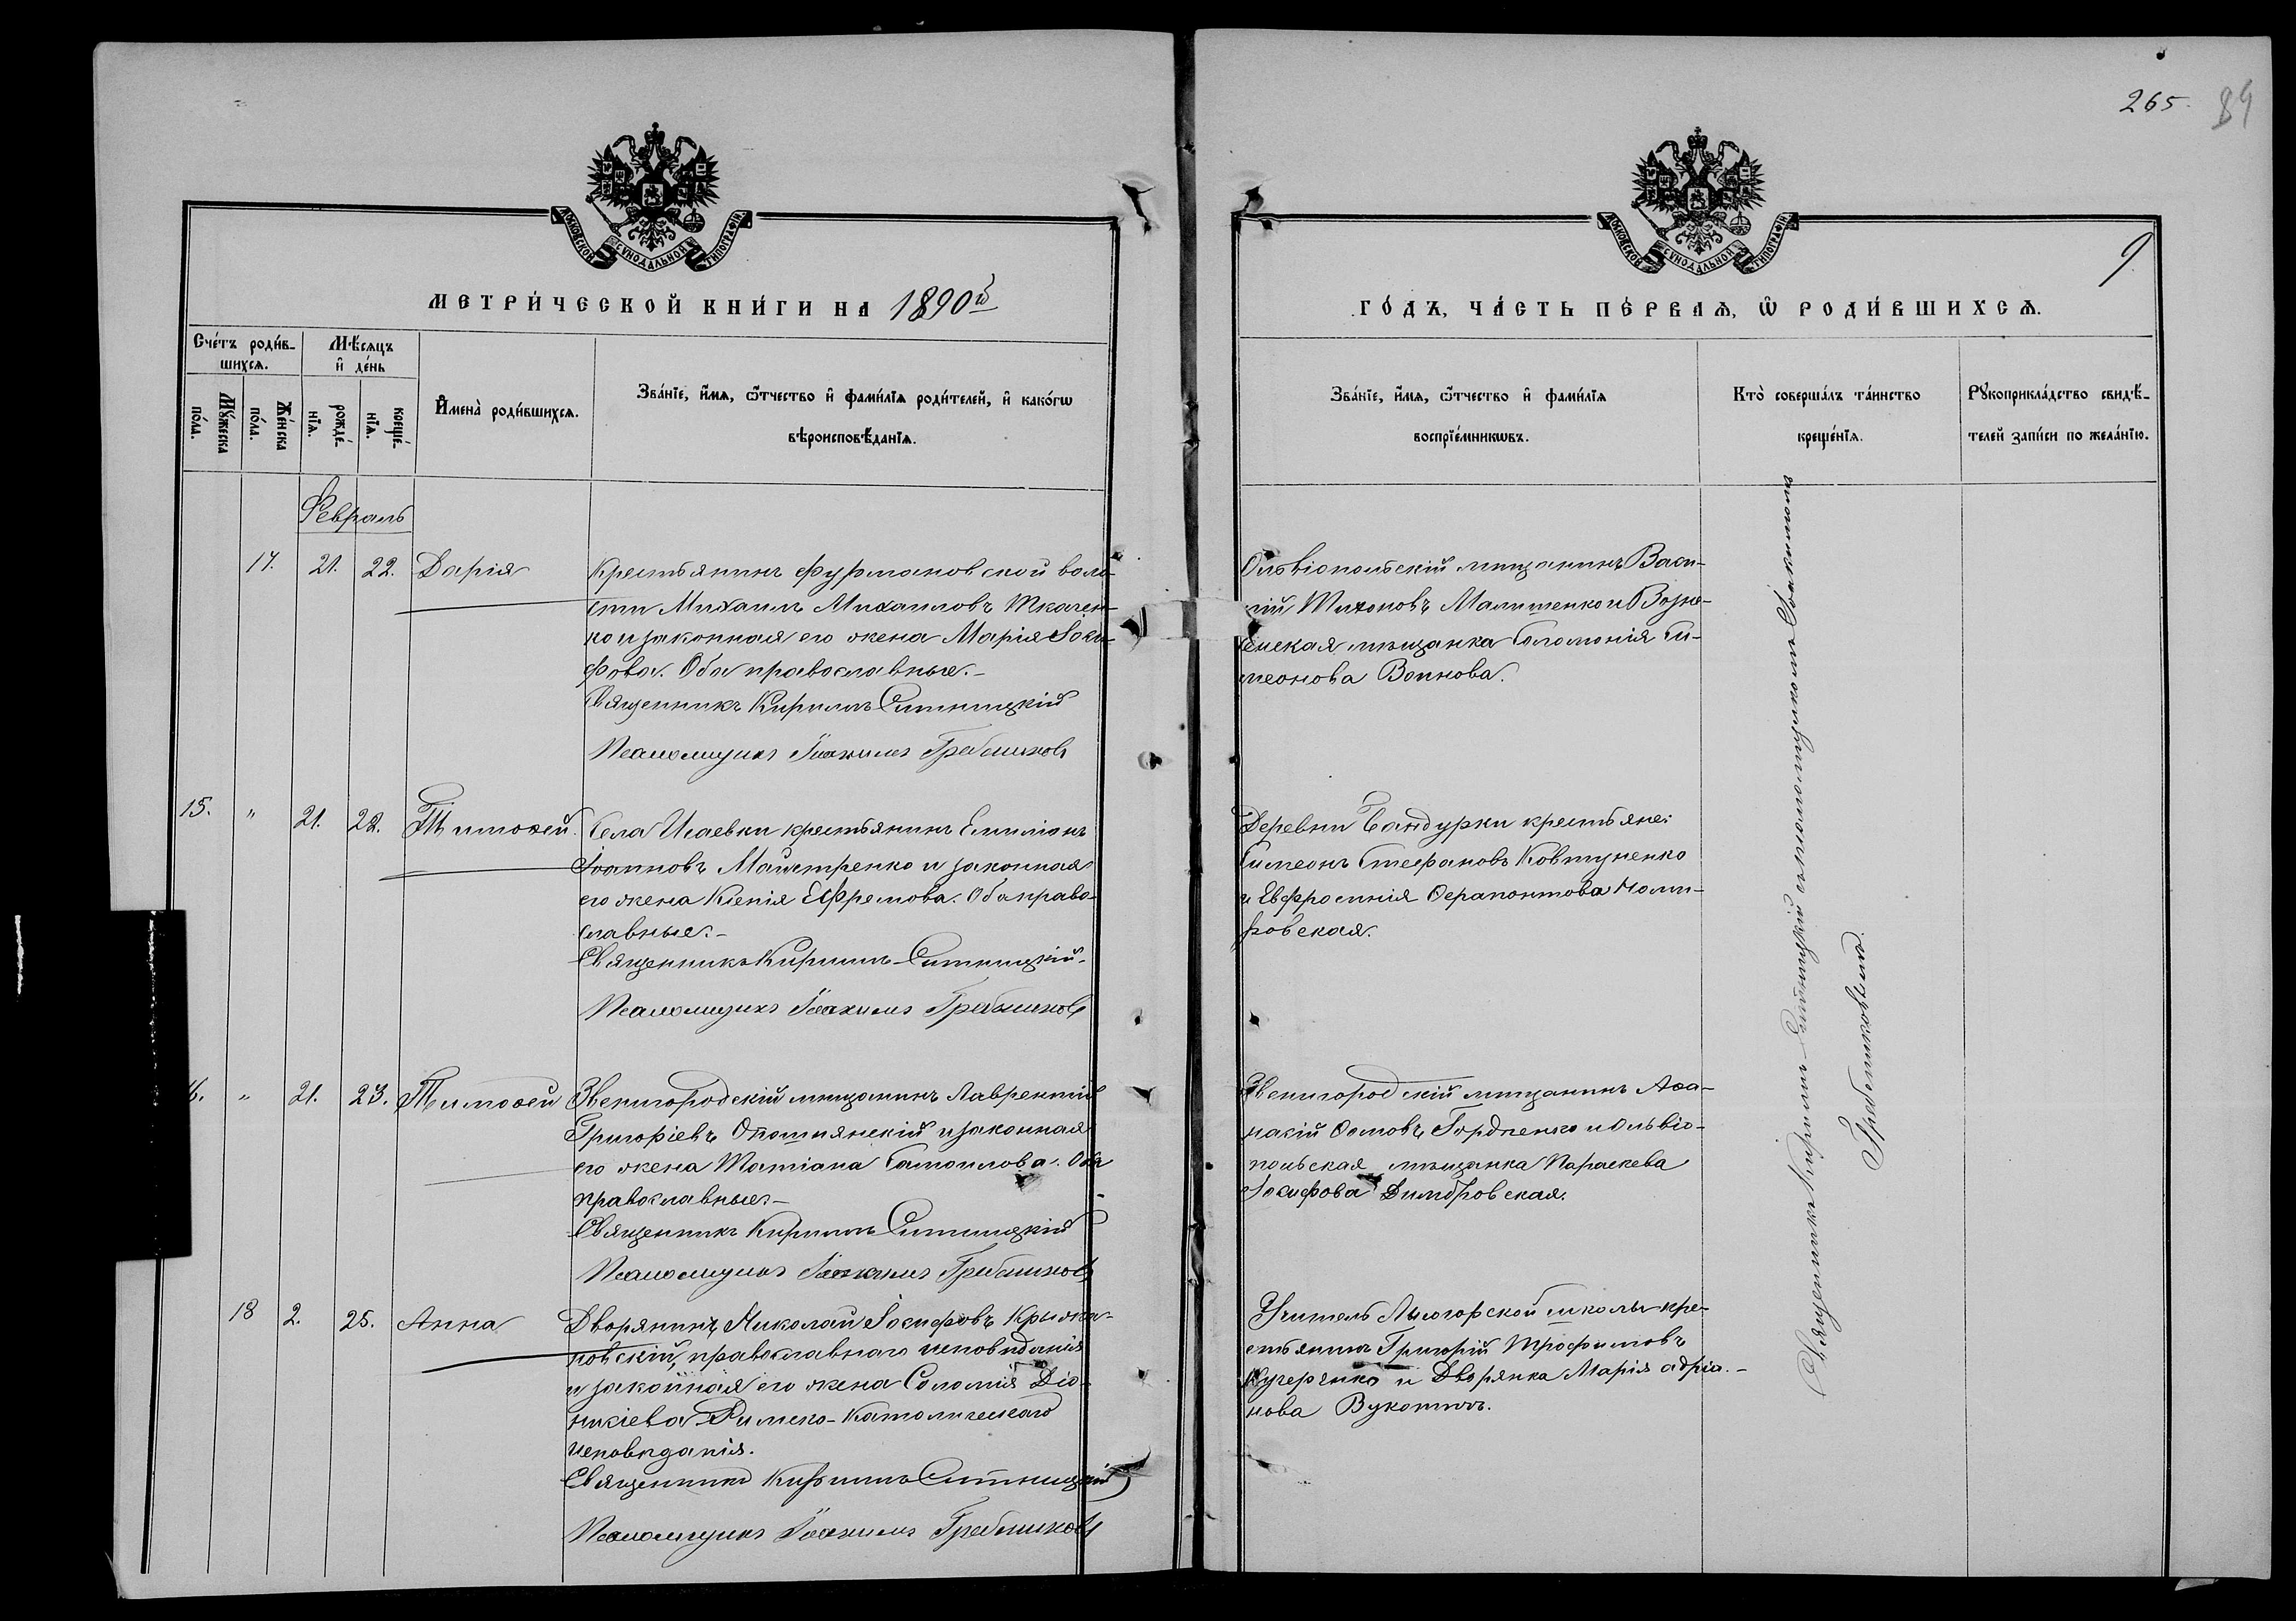 265. 89
МОСКОВСКОЙ СѴНОДАЛЬНОЙ ТИПОГРАФІИ
МЕТРИ́ЧЕСКОЙ КНИ́ГИ НА 1890й
Сче́тъ роди́в-
шихсѧ.
Мꙋ́жеска
по́ла.
Же́нска
по́ла.
Мѣ́сѧцъ
и҆ де́нь
рожде́-
нїѧ.
креще́-
нїѧ.
И҆мена̀ роди́вшихсѧ.
Зва́нїе, и҆́мѧ, ѻ҆́тчество и҆ фами́лїѧ роди́телей, и҆ како́гѡ
вѣроисповѣ́данїѧ.
Февраль
17. 21. 22. Дарія
Крестьянинъ Фурмановской воло-
сти Михаилъ Михаиловъ Ткачен-
ко и законная его жена Марія Іоси-
фова. Оба православные.-
Священникъ Кириллъ Ситницкій
Псаломщикъ Іоакимъ Гребениковъ
15. " 21. 22. Тимоѳей.
Села Исаевки крестьянинъ Емиліанъ
Іоанновъ Майстренко и законная
его жена Ксенія Ефремова. Оба право-
славные.-
Священникъ Кириллъ Ситницкій.
Псаломщикъ Іоакимъ Гребениковъ
16. " 21. 23. Тимоѳей
Звенигородскій мѣщанинъ Лаврентій
Григоріевъ Опошнянскій и законная
его жена Татіана Самоилова. Оба
православные.-
Священникъ Кириллъ Ситницкій
Псаломщикъ Іоакимъ Гребениковъ
18 2. 25. Анна
Дворянинъ Николай Іосифовъ Крыжа-
новскій, православнаго исповѣданія
и законная его жена Соломія Діо-
нисіева Римско-Католическаго
исповѣданія.
Священникъ Кириллъ Ситницкій
Псаломщикъ Іоакимъ Гребениковъ
МОСКОВСКОЙ СѴНОДАЛЬНОЙ ТИПОГРАФІИ
9
ГО́ДЪ, ЧА́СТЬ ПЕ́РВАѦ, Ѡ҆ РОДИ́ВШИХСѦ.
Зва́нїе, и҆́мѧ, ѻ҆́тчество и҆ фами́лїѧ
воспрїе́мникѡвъ.
Кто̀ соверша́лъ та́инство
креще́нїѧ.
Рꙋкоприкла́дство свидѣ́-
телей за́писи по жела́нїю.
Ольвіопольскій мѣщанинъ Васи-
лій Тихоновъ Малишенко и Возне-
сенская мѣщанка Соломонія Си-
меонова Воинова.
Деревни Бандурки крестьяне:
Симеонъ Стефановъ Ковтуненко
и Евфросинія Ѳерапонтова
ровская.
Звенигородскій мѣщанинъ Аѳа-
насій Ѳомовъ Гордіенко и Ольвіо-
польская мѣщанка Параскева
Іосифова Димбровская.
Учитель Лысогорской школы кре-
стьянинъ Григорій Трофимовъ
Кучеренко и Дворянка Марія Адріа-
нова Вукотичъ.
Священникъ Кириллъ Ситницкій съ псаломщикомъ Іоакимомъ
Гребениковымъ.